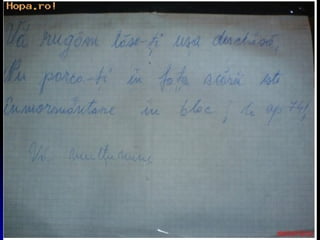 Hopa.ro!
Vă rugăm lăsa-ți ușa deschisă,
Nu parca-ți în fața scării este
înmormântare în bloc ap 74
Vă mulțumim